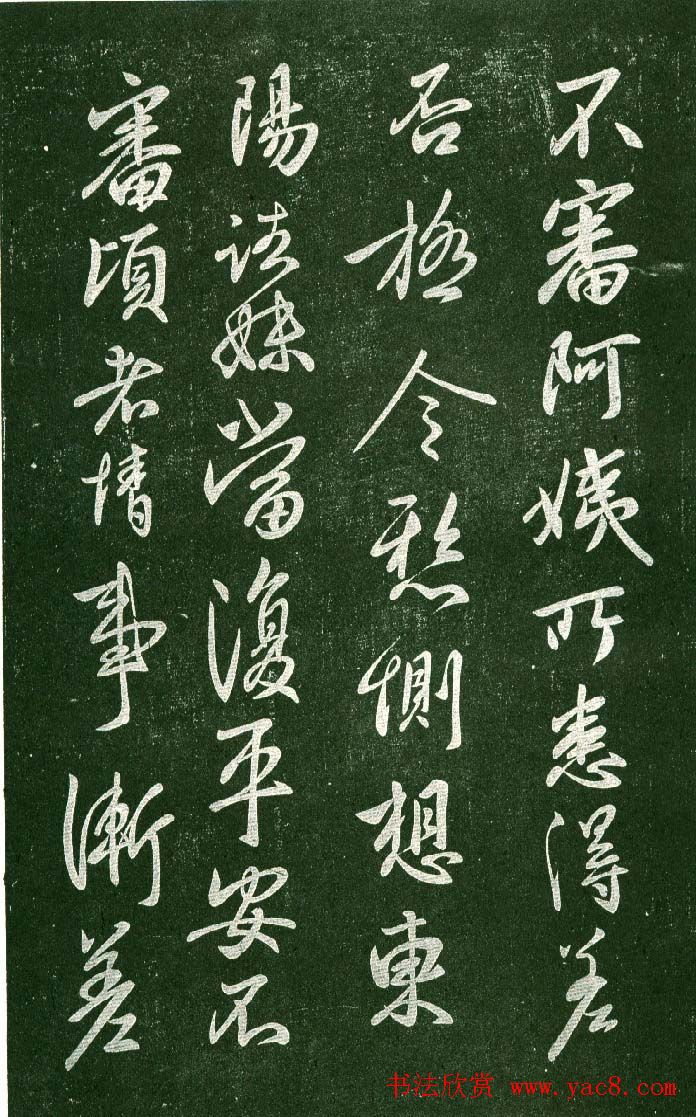 不審阿姨所患得差
否極令懸惻想東
陽諸妹當復平安不
審頃者情事漸差
书法欣赏 www.yac8.com